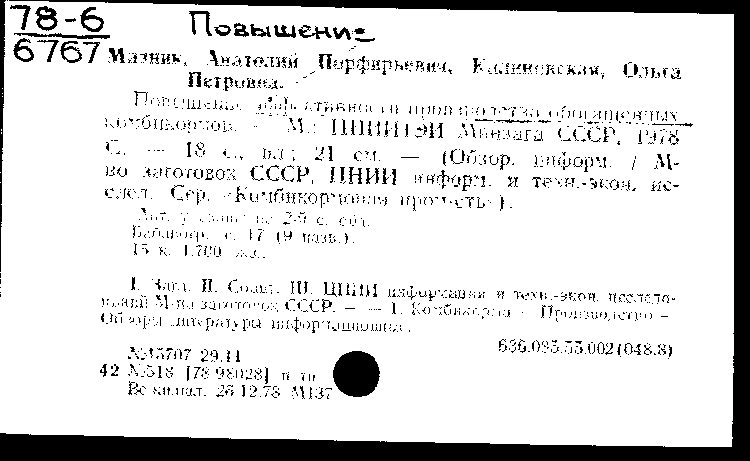 78-6
6767
Повышение
Мазник, Анатолий Порфирьевич, Калиновская, Ольга
Петровна.
Повышение эффективности производства обогащенных
комбикормов. — М.: ЦНИИТЭИ Минзага СССР, 1978
С. — 18 с., ил.; 21 см. — (Обзор. информ. / М-
во заготовок СССР, ЦНИИ информ. и техн.-экон. ис-
след. Сер. «Комбикормовая пром-сть»).
Авт. указаны на 2-й с. обл.
Библиогр.: с. 17 (9 назв.).
15 к. 1.700 экз.
I. Загл. II. Соавт. III. ЦНИИ информации и техн.-экон. исследо-
ваний М-ва заготовок СССР. — — 1. Комбикорма — Производство —
Обзоры литературы информационные.
636.085.55.002(048.8)
№45707 29.11
42 №518 [78-98028] п тп
Вс кн.пал. 26.12.78 М137